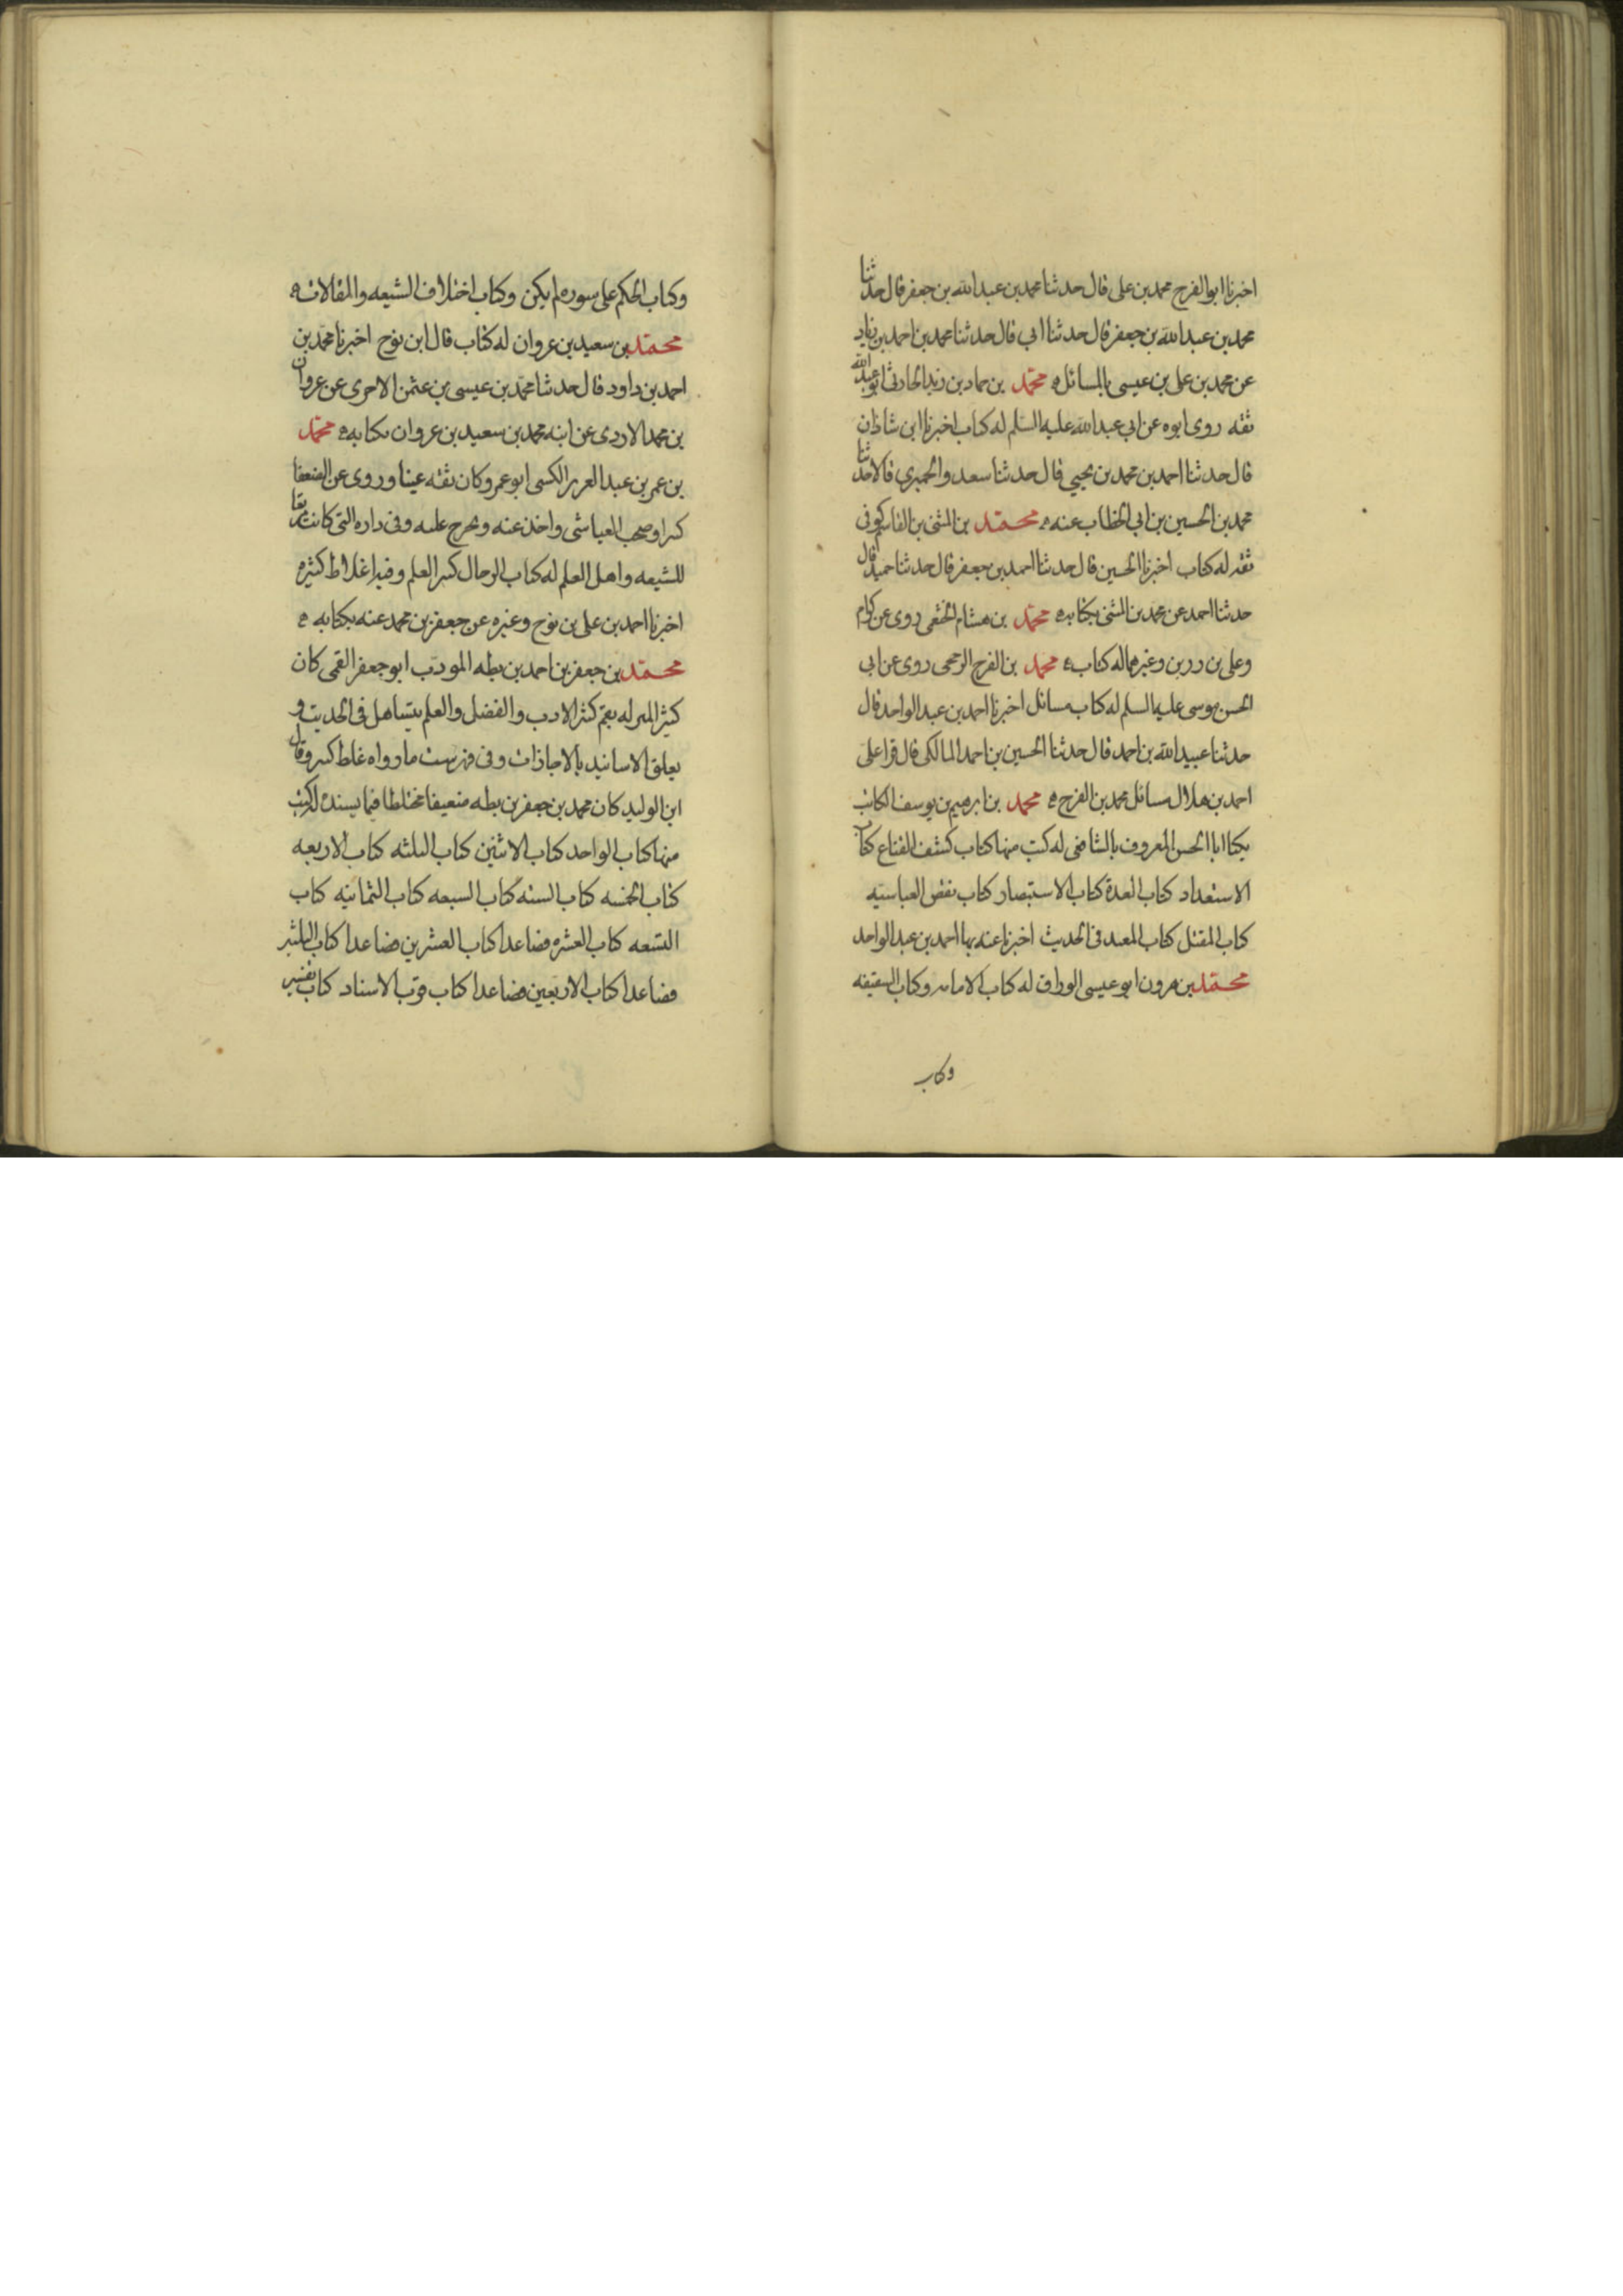 اخبرنا ابو الفرج محمد بن على قال حدثنا محمد بن عبد الله بن جعفر قال حدثنا
محمد بن عبد الله بن جعفر قال حدثنا ابي قال حدثنا محمد بن احمد بن زياد
عن محمد بن على بن عيسى بالمسائل ه محمد بن حماد بن زيد الحارثى ابو عبد الله
ثقه روى ابوه عن ابي عبد الله عليه السلم له كتاب اخبرنا ابن شاذان
قال حدثنا احمد بن محمد بن يحيى قال حدثنا سعد والحميرى قالا حدثنا
محمد بن الحسين بن ابي الخطاب عنه ه محمد بن المثنى بن القاسم كوفى
ثقه له كتاب اخبرنا الحسين قال حدثنا احمد بن جعفر قال حدثنا حميد قال
حدثنا احمد عن محمد بن المثنى بكتابه ه محمد بن هشام الخثعمى روى عن كرام
وعلى بن رزين وغيرهما له كتاب ه محمد بن الفرج الرحجى روى عن ابي
الحسن موسى عليه السلم له كتاب مسائل اخبرنا احمد بن عبد الواحد قال
حدثنا عبيد الله بن احمد قال حدثنا الحسين بن احمد المالكى قال قرا على
احمد بن هلال مسائل محمد بن الفرج ه محمد بن ابرهيم بن يوسف الكاتب
يكنا ابا الحسن المعروف بالشافعى له كتب منها كتاب كشف القناع كتاب
الاستعداد كتاب العدة كتاب الاستبصار كتاب نقض العباسيه
كتاب المقتل كتاب المفيد فى الحديث اخبرنا عنه بها احمد بن عبد الواحد
محمد بن هرون ابو عيسى الوراق له كتاب الامامه وكتاب السقيفه
وكتاب
وكتاب الحكم على سوره لم يكن وكتاب اختلاف الشيعه والمقالات ه
محمد بن سعيد بن غزوان له كتاب قال ابن نوح اخبرنا محمد بن
احمد بن داود قال حدثنا محمد بن عيسى بن عثمن الاجرى عن غزوان
بن محمد الازدى عن ابنه محمد بن سعيد بن غزوان بكتابه ه محمد
بن عمر بن عبد العزيز الكشى ابو عمرو كان ثقه عينا وروى عن الضعفا
كثيرا وصحب العياشى واخذ عنه وتخرج عليه وفى داره التى كانت مرتعا
للشيعه واهل العلم له كتاب الرجال كثير العلم وفيه اغلاط كثيره
اخبرنا احمد بن على بن نوح وغيره عن جعفر بن محمد عنه بكتابه ه
محمد بن جعفر بن احمد بن بطه المودب ابو جعفر القمى كان
كبير المنزله بقم كثير الادب والفضل والعلم يتساهل فى الحديث و
يعلق الاسانيد بالاجازات وفى فهرست ما رواه غلط كثير وقال
ابن الوليد كان محمد بن جعفر بن بطه ضعيفا مختلطا فيما يسنده له كتب
منها كتاب الواحد كتاب الاثنين كتاب الثلثه كتاب الاربعه
كتاب الخمسه كتاب السته كتاب السبعه كتاب الثمانيه كتاب
التسعه كتاب العشره فصاعدا كتاب العشرين فصاعدا كتاب الثلثين
فصاعدا كتاب الاربعين فصاعدا كتاب قرب الاسناد كتاب تفسير